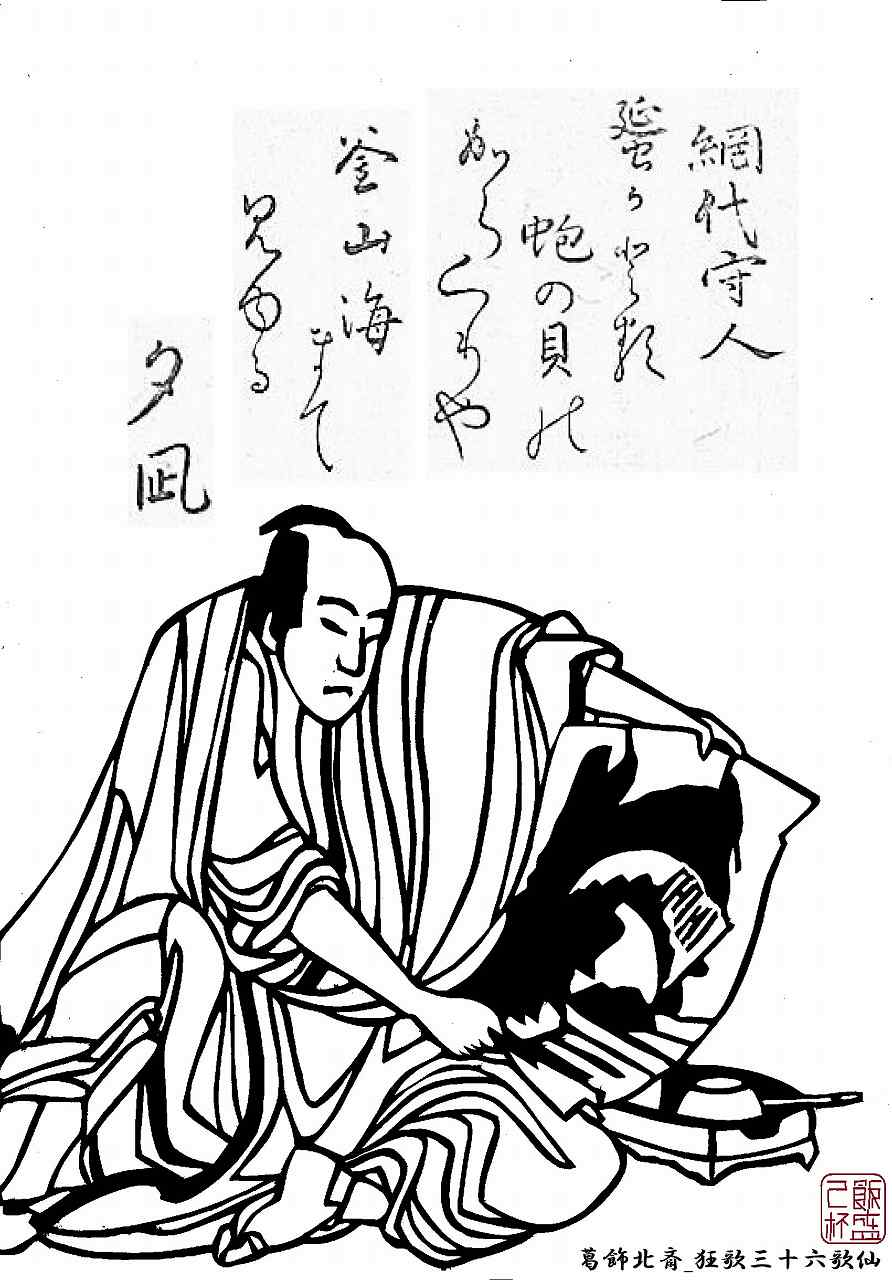 網代守人
蜑かとる
蚫の貝の
からくりや
釜山海
まて
見ゆる
夕凪
葛飾北斎_狂歌三十六歌仙
飯盛
己杯